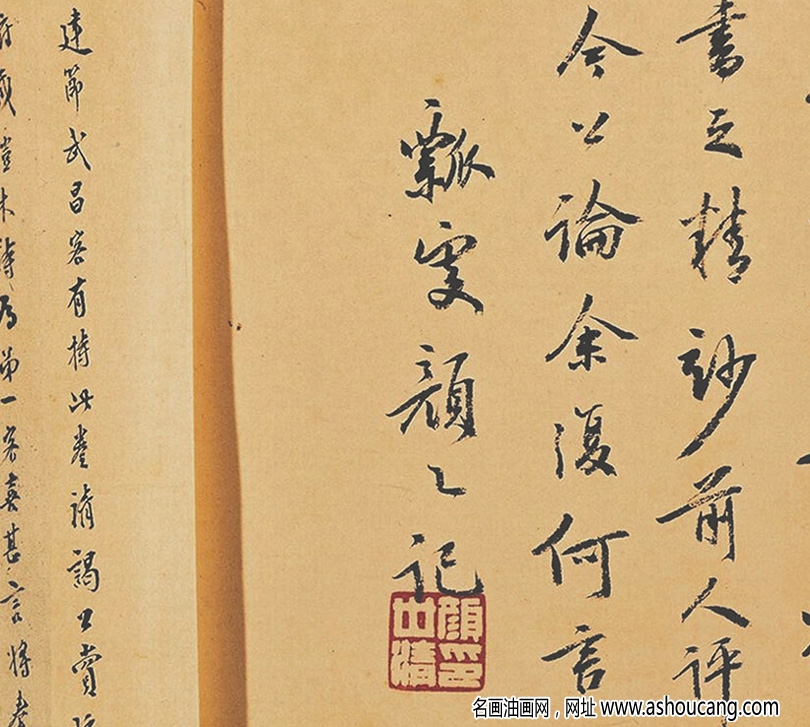 書之精玅前人評
今公論余復何言
瓢叟顏之記
顏印世清
建節武昌客有持此卷請謁公賞
第一客喜甚言將
名画油画网，网址 www.ashoucang.com